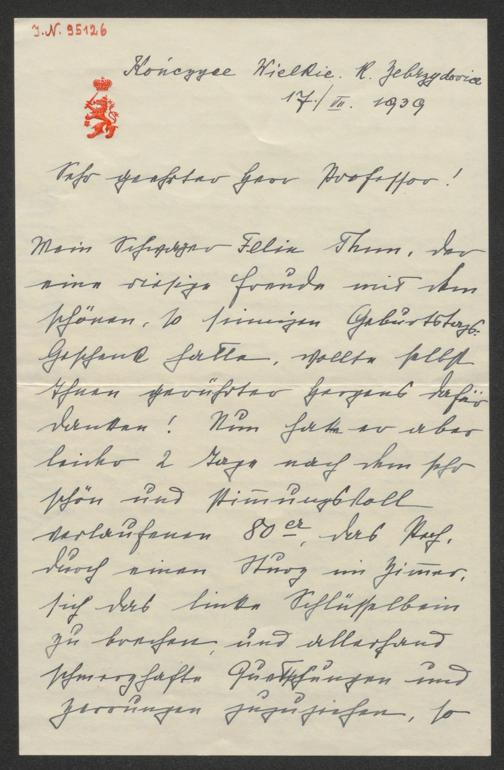 J.N. 95126
Kończyce Wielkie. K. Zebrzydowice
17./VII. 1939
Sehr geehrter Herr Professor!
Mein Schwager Felix Thun, der
eine riesige Freude mit dem
schönen, so sinnigen Geburtstags-
Geschenk hatte, wollte selbst
Ihnen gerührten Herzens dafür
danken! Nun hatte er aber
leider 2 Tage nach dem sehr
schön und stimmungsvoll
verlaufenen 80er, das Pech,
durch einen Sturz im Zimmer,
sich das linke Schlüsselbein
zu brechen, und allerhand
schmerzhafte Quetschungen und
Zerrungen zuzuziehen, so